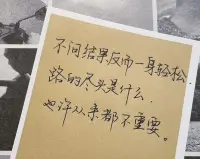 不问结果反而一身轻松
路的尽头是什么.
也许从来都不重要。